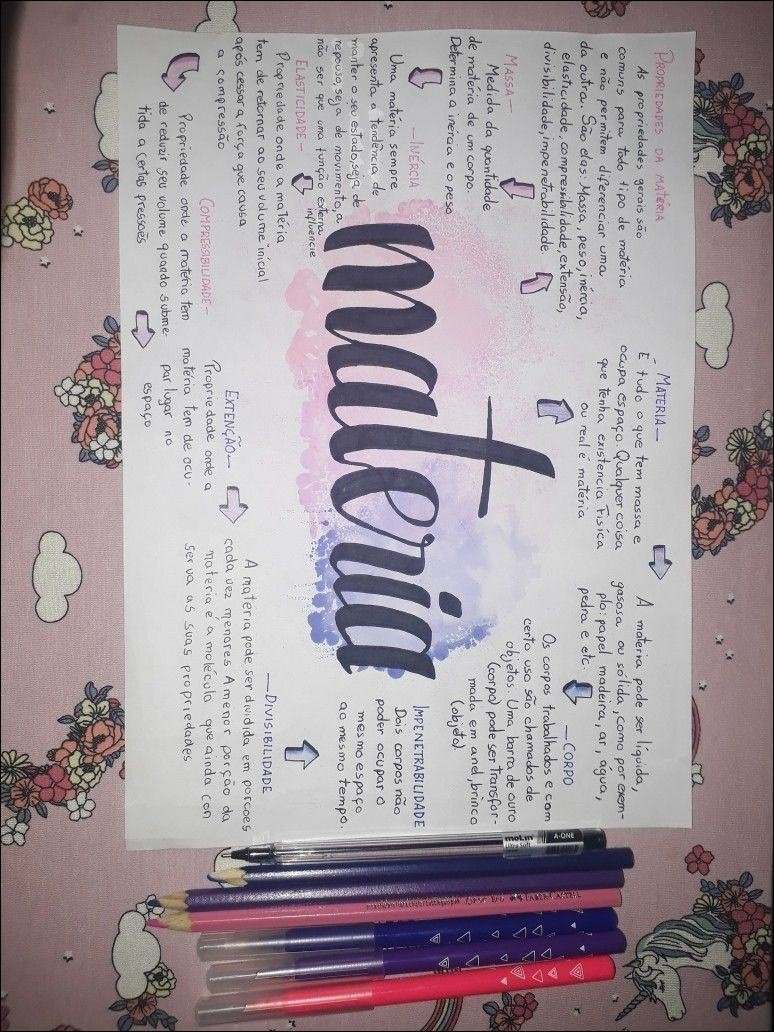 PROPRIEDADES DA MATÉRIA
As propriedades gerais são
comuns para todo tipo de matéria
e não permitem diferenciar uma
da outra. São elas: Massa, peso, inércia,
elasticidade, compressibilidade, extensão,
divisibilidade, impenetrabilidade.
MASSA—
Medida da quantidade
de matéria de um corpo.
Determina a inercia e o peso
—INÉRCIA
Uma matéria sempre
apresenta a tendência de
manter o seu estado, seja de
repouso, seja de movimento, a
não ser que uma função externa
influencie
ELASTICIDADE—
Propriedade onde a matéria
tem de retornar ao seu volume inicial
após cessar a força que causa
a compressão
COMPRESSIBILIDADE—
Propriedade onde a matéria tem
de reduzir seu volume quando subme-
tida a certas pressões
MATERIA—
É tudo o que tem massa e
ocupa espaço. Qualquer coisa
que tenha existencia Fisica
ou real é matéria
A materia pode ser líquida,
gasosa ou sólida, como por exem-
plo: papel, madeira, ar, agua,
pedra e etc.
—CORPO
Os corpos trabalhados e com
certo uso são chamados de
objetos. Uma barra de ouro
(corpo) pode ser transfor-
mada em anel, brinco
(objeto)
materia
IMPENETRABILIDADE
Dois corpos não
poder ocupar o
mesmo espaço
ao mesmo tempo.
EXTENÇÃO—
Propriedade onde a
matéria tem de ocu-
par lugar no
espaço
—DIVISIBILIDADE
A matéria pode ser dividida em porcoes
cada vez menores. A menor porção da
materia é a molécula, que ainda con
serva as suas propriedades
molin A-ONE
Ultra Soft
FABER-CASTELL